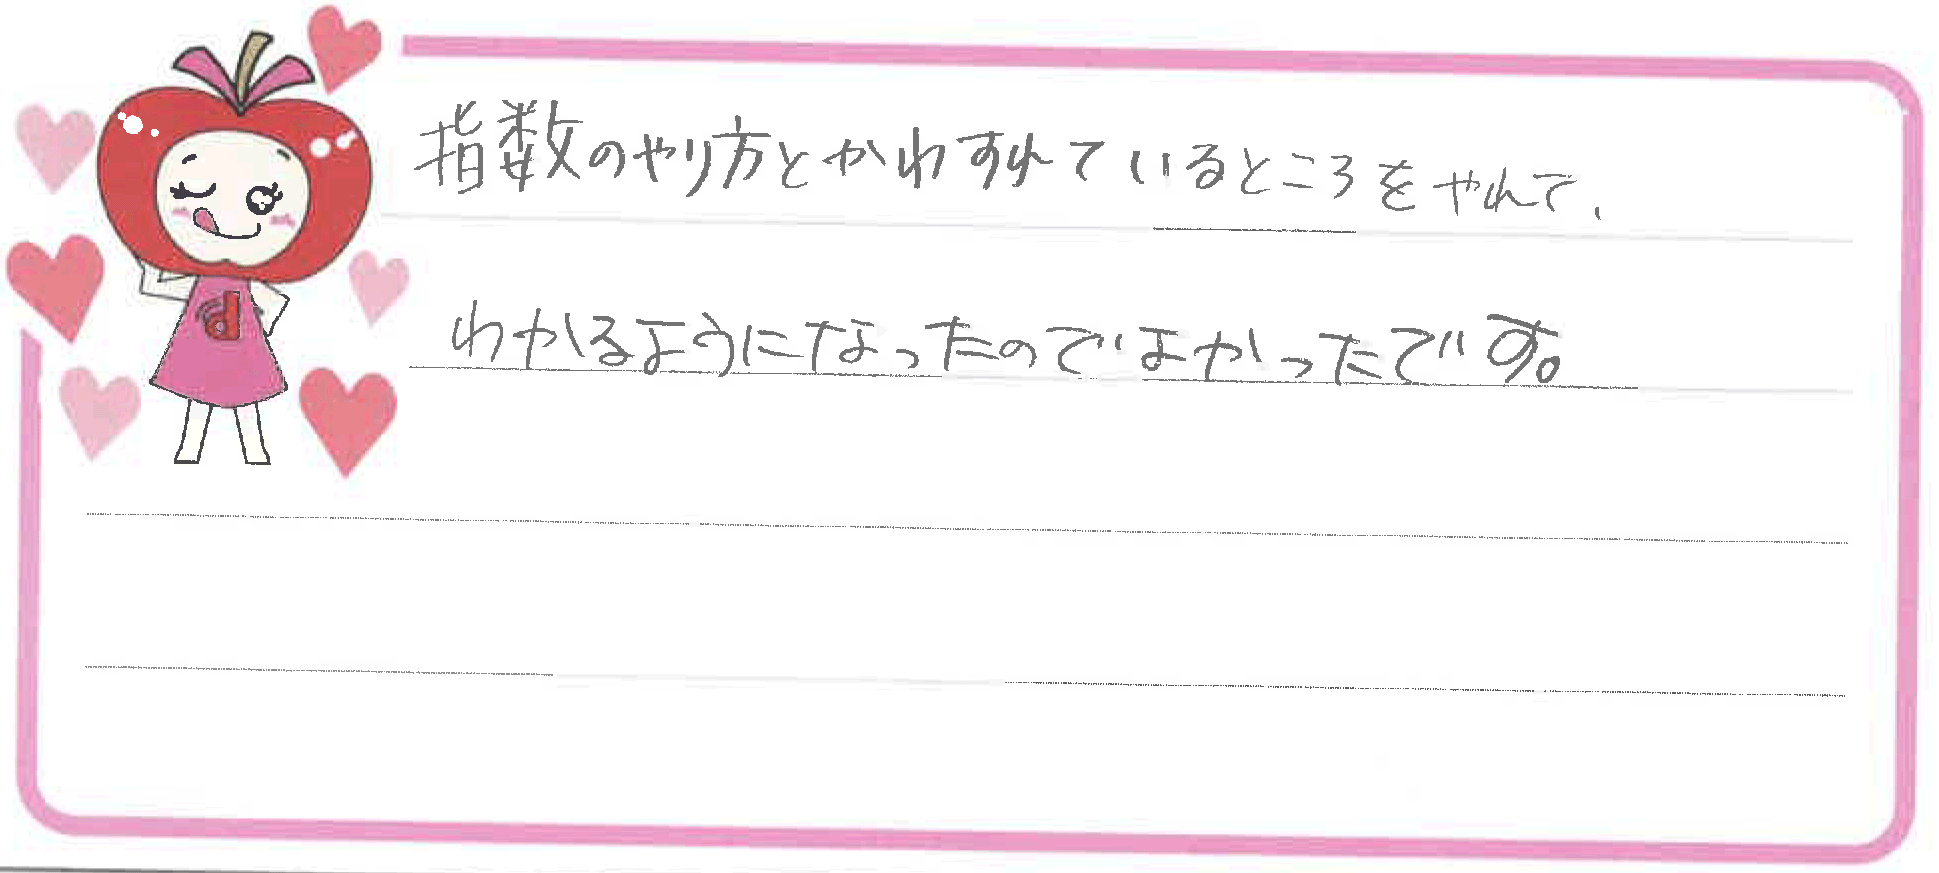 指数のやり方とかわすれているところをやれて、
わかるようになったのでよかったです。